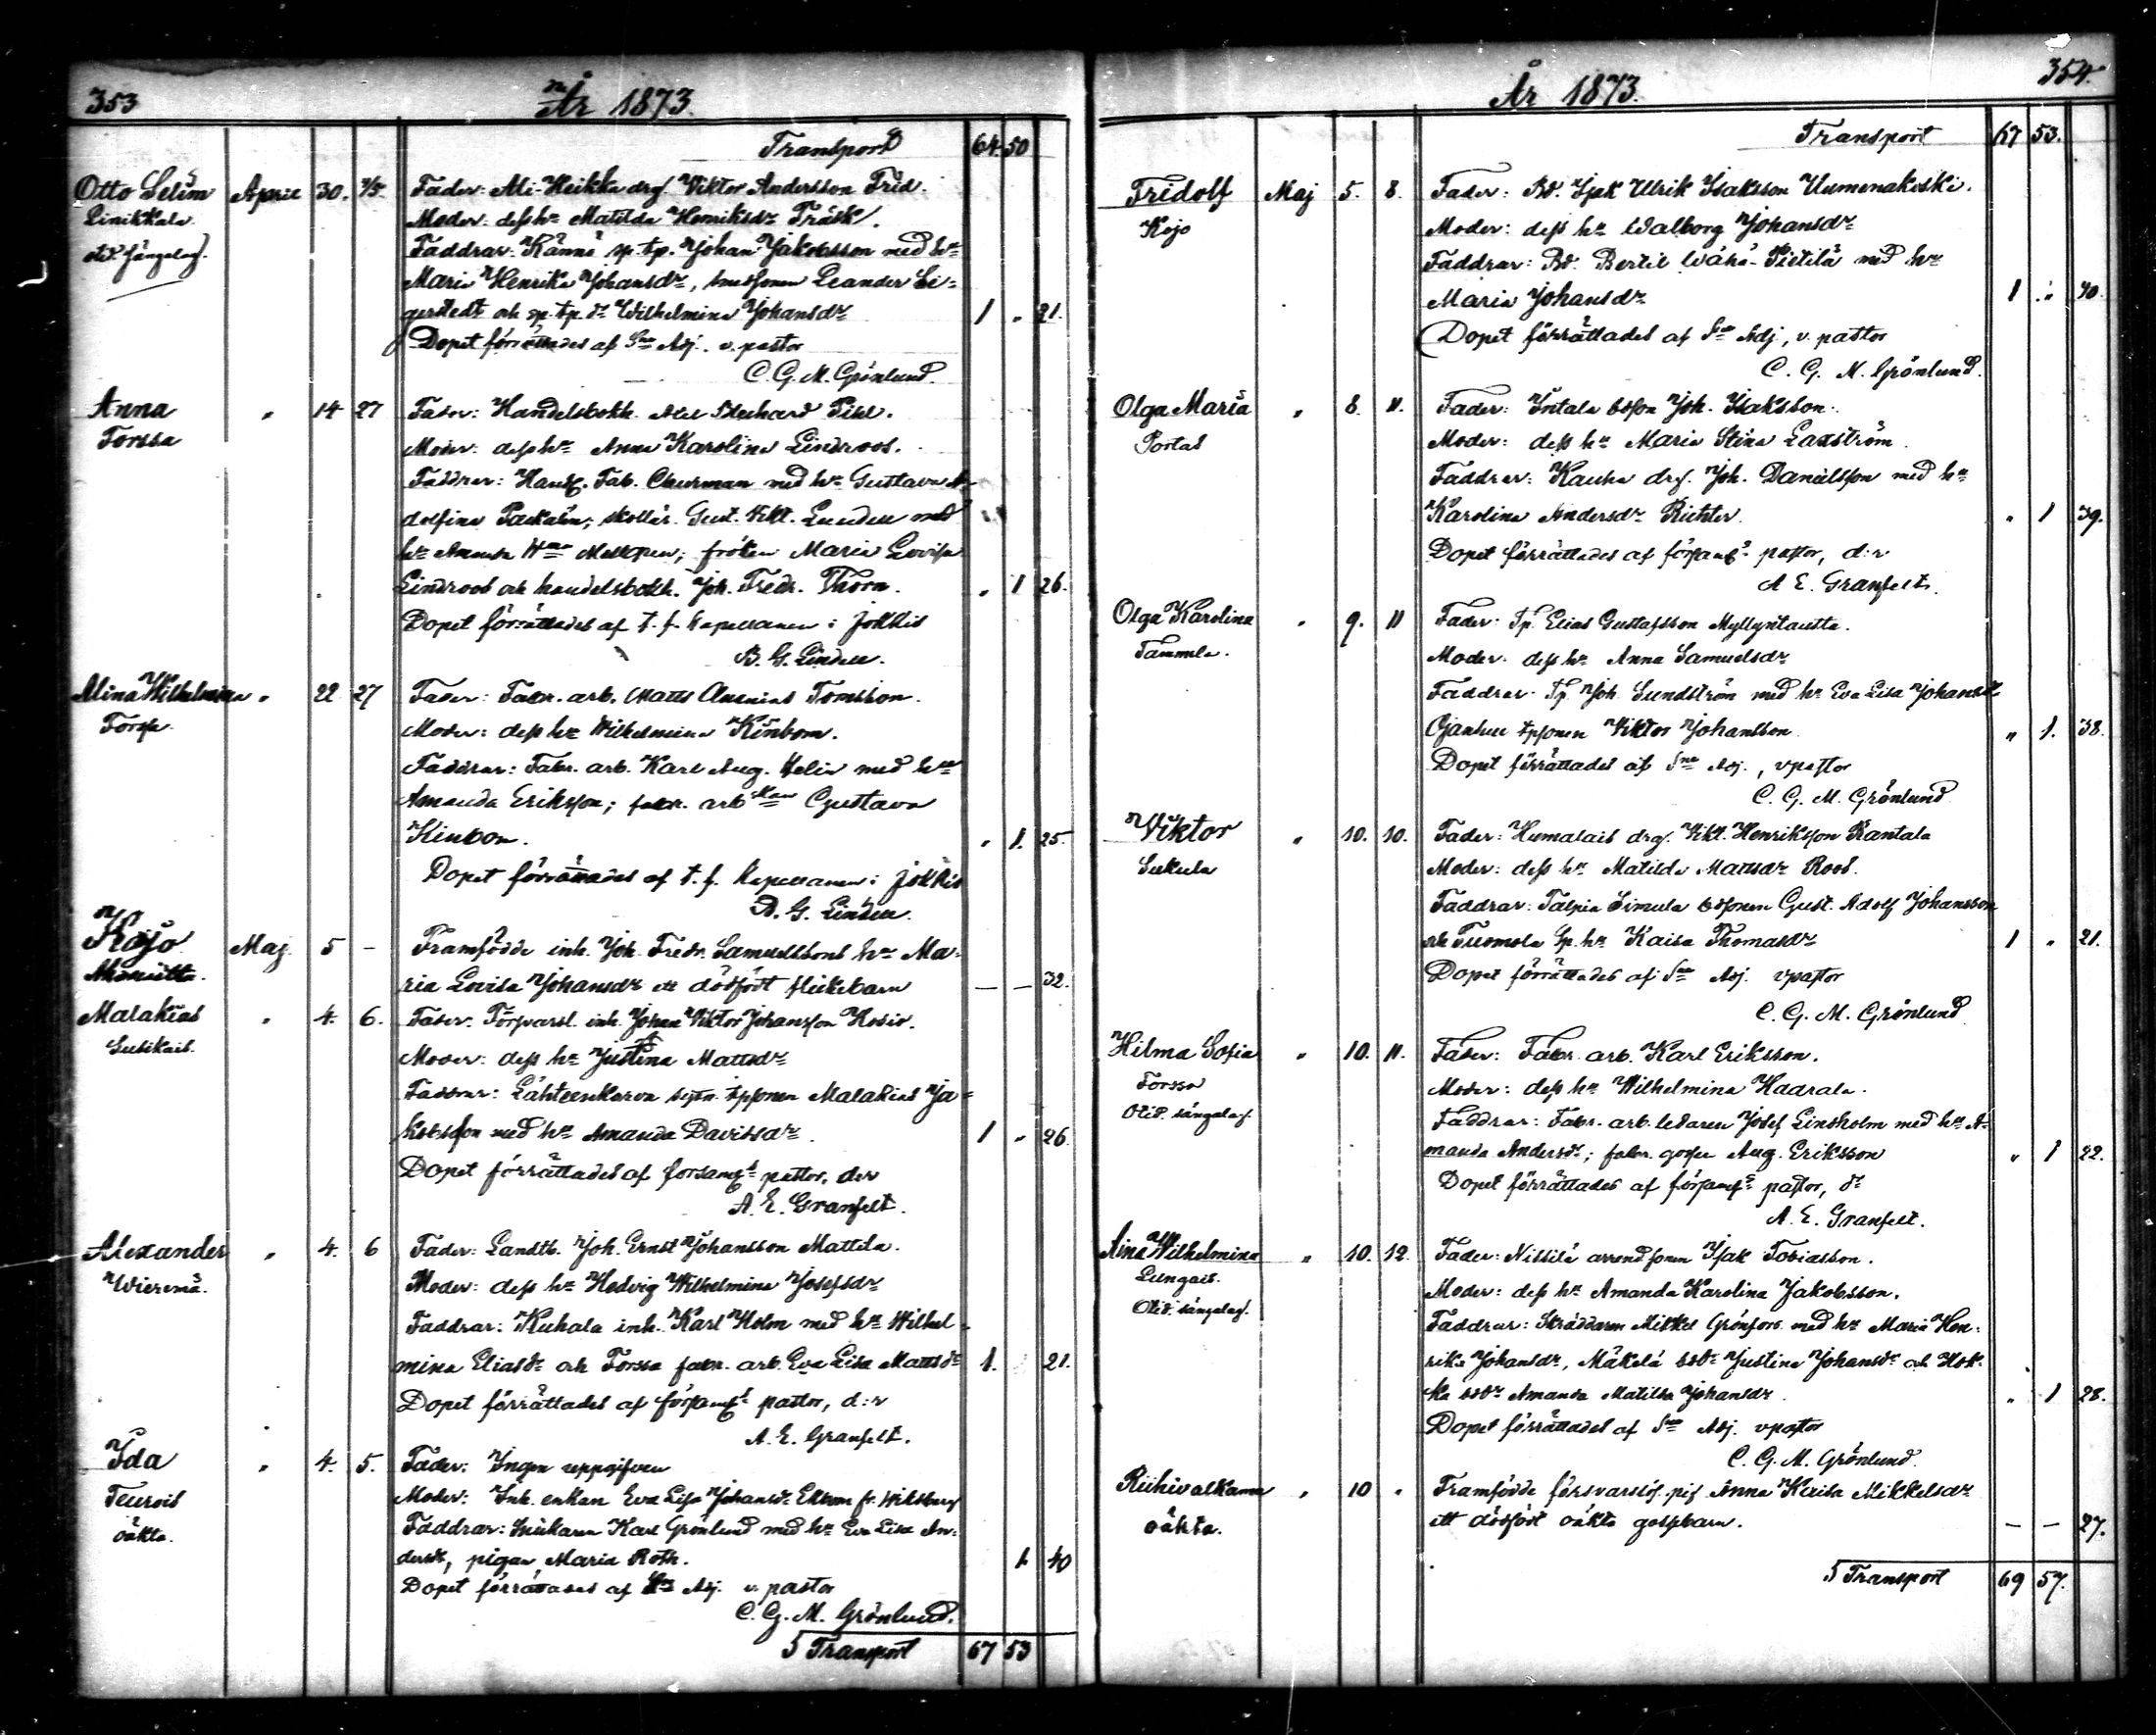 353
År 1873.
Transport 64. 50
Otto Selim April 30. 4/5. Fader: Ali-Heikka drg. Viktor Andersson Frid.
Linikkala. Moder: dess hu Matilda Henriksdr Träsk.
Faddrar: Kännö sp. tp. Johan Jakobsson med hu
Maria Henrika Johansdr, smedsonen Leander
och sp. tp. dr Wilhelmina Johansdr 1 " 21.
Dopet förrättades af Sne Adj. v. pastor
C. G. M. Grönlund.
Anna " 14 27 Fader: Handelsbokh. Axel
Forssa Moder: dess hu Anna Karolina Lindroos.
Faddrar: Fab. med hu Gustava A-
dolfina ; Gust. Vikt. Lunden med
hu Amanda ; fröken Maria Lovisa
Lindroos och handelsbokh. Joh. Fredr. Thorn. " 1 26.
Dopet förrättades af t. f. kapellanen i Jokkis
B. G. Lindell.
Alina Wilhelmina " 22 27 Fader: Fabr. arb. Matts Ananias Tomsson.
Forssa. Moder: dess hu Wilhelmina Kinbom.
Faddrar: Fabr. arb. Karl Aug. Helin med hu
Amanda Eriksson; fabr. arb. Gustava
Kinbom. " 1. 25.
Dopet förrättades af t. f. kapellanen i Jokkis
B. G. Lindell.
Kojo Maj 5 - Framfödde inh. Joh. Fredr. Samuelssons hu Ma-
ria Lovisa Johansdr ett dödfödt flickebarn — — 32.
Malakias " 4. 6. Fader: Försvarsl. inh. Johan Viktor Johansson
Susikais. Moder: dess hu Justina Mattsdr
Faddrar: Lähteenkorva tpsonen Malakias Ja-
kobsson med hu Amanda Davidsdr. 1 " 26
Dopet förrättades af församls pastor, d:r
A. E. Granfelt.
Alexander " 4. 6 Fader: Landtb. Joh. Ernst Johansson Mattila.
Wieremä. Moder: dess hu Hedvig Wilhelmina Josefsdr
Faddrar: Kuhala inh. Karl Holm med hu Wilhel-
mina Eliasdr och Forssa fabr. arb. Eva Lisa Mattsdr 1. 21.
Dopet förrättades af församls pastor, d:r
A. E. Granfelt.
Ida " 4. 5. Fader: Ingen uppgifven
Teurois Moder: Inh. enkan Eva Lisa Johansdr Ekbom fr. Wiksberg
oäkta. Faddrar: Snickaren Karl Grönlund med hu Eva Lisa An-
dersdr, pigan Maria Roth. 1. 40
Dopet förrättades af Sne Adj. v. pastor
C. G. M. Grönlund.
Transport 67 53
354.
År 1873.
Transport 67 53.
Fridolf Maj 5. 8. Fader: Bd. Isak Ulrik Isaksson Uumenakoski.
Kojo Moder: dess hu Walborg Johansdr
Faddrar: Bd. Bertil Wähä-Pietilä med hu
Maria Johansdr 1 " 40.
Dopet förrättades af Sne Adj., v. pastor
C. G. M. Grönlund.
Olga Maria " 8. 11. Fader: Intala bdson Joh. Isaksson.
Portas Moder: dess hu Maria Stina Laxström.
Faddrar: Kauha drg. Joh. Danielsson med hu
Karolina Andersdr Richter. " 1 39.
Dopet förrättades af församls pastor, d:r
A. E. Granfelt.
Olga Karolina " 9. 11 Fader: Tp. Elias Gustafsson Myllyntausta.
Tammela. Moder: dess hu Anna Samuelsdr
Faddrar: Tp. Joh. Sundström med hu Eva Lisa Johansdr
Ojanhuu tpsonen Viktor Johansson " 1. 38.
Dopet förrättades af Sne Adj., vpastor
C. G. M. Grönlund
Viktor " 10. 10. Fader: Humalais drg. Vikt. Henriksson Rantala
Sukula Moder: dess hu Matilda Mattsdr Roos.
Faddrar: Talpia Simula bdsonen Gust. Adolf Johansson
och Tuomola Sp. hu Kaisa Thomasdr 1 " 21.
Dopet förrättades af Sne Adj. vpastor
C. G. M. Grönlund
Hilma Sofia " 10. 11. Fader: Fabr. arb. Karl Eriksson.
Forssa Moder: dess hu Wilhelmina Haarala.
Otid. sängelag. Faddrar: Fabr. arb. ledaren Josef Lindholm med hu A-
manda Andersdr; fabr. gossen Aug. Eriksson " 1 22.
Dopet förrättades af församls pastor, dr
A. E. Granfelt.
Aina Wilhelmina " 10. 12. Fader: Nissilä arrendsonen Isak Tobiasson.
Lungais. Moder: dess hu Amanda Karolina Jakobsson.
Otid. sängelag. Faddrar: Skräddaren Mikkel Grönfors med hu Maria Hen-
rika Johansdr, Mäkelä bddr Justina Johansdr och Hok-
ka bddr Amanda Matilda Johansdr. " 1 28.
Dopet förrättades af Sne Adj. vpastor
C. G. M. Grönlund.
Riihivalkama " 10 " Framfödde försvarslös. pig. Anna Kaisa Mikkelsdr
oäkta. ett dödfödt oäkta gossbarn. — — 27.
Transport 69 57.